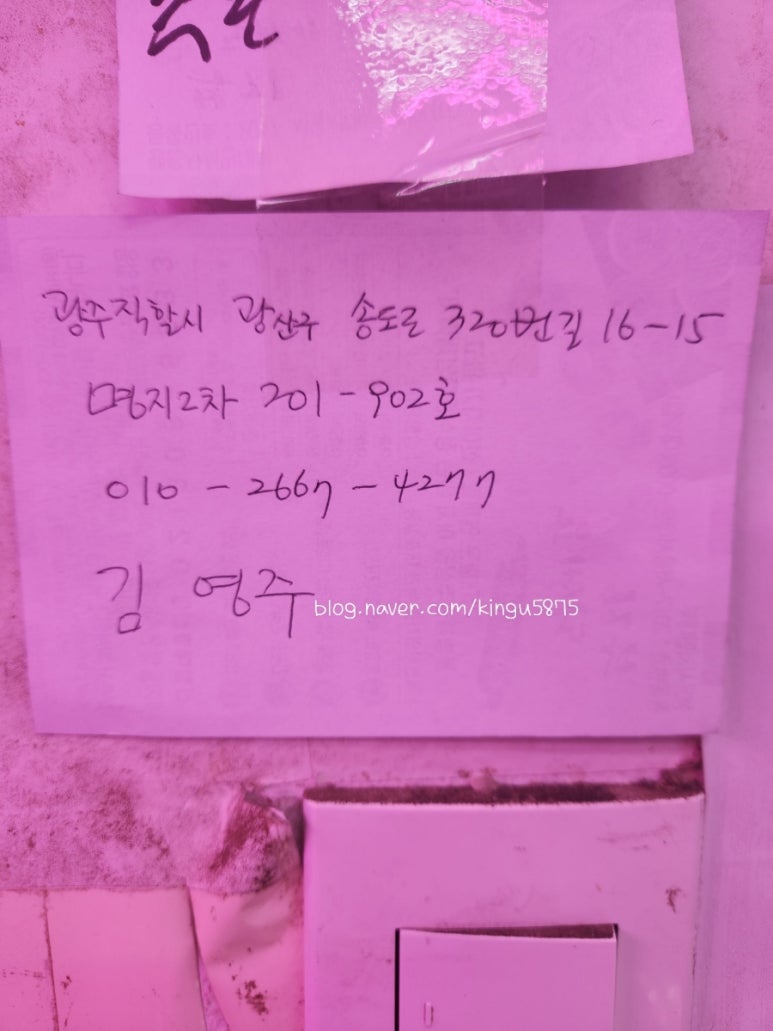 광주직할시 광산구 송도로 320번길 16-15
명지2차 201-902호
010-2667-4277
김영주
blog.naver.com/kingu5875